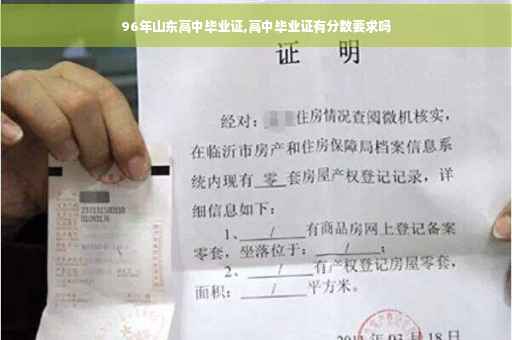 96年山东高中毕业证,高中毕业证有分数要求吗
证 明
经对：住房情况查阅微机核实，
在临沂市房产和住房保障局档案信息系
统内现有 零 套房屋产权登记记录，详
细信息如下：
1、 / 有商品房网上登记备案
零套，坐落位于： / ；
2、 / 有产权登记房屋零套，
面积： / 平方米。